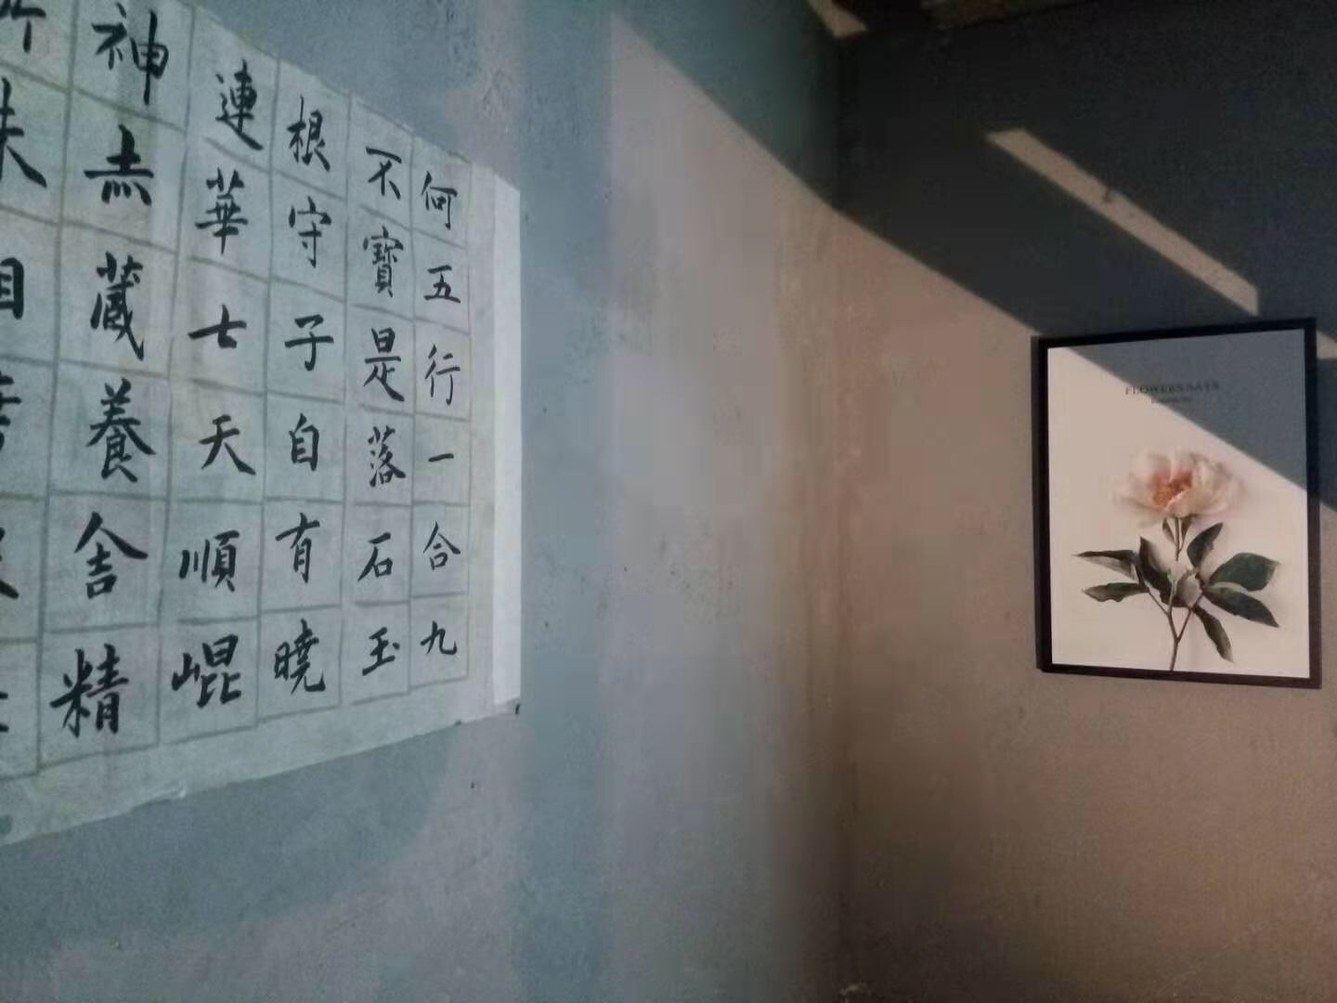 何五行一合九
不寶是落石玉
根守子自有曉
連華士天順崐
神藏養舍精
FLOWERSDAYS